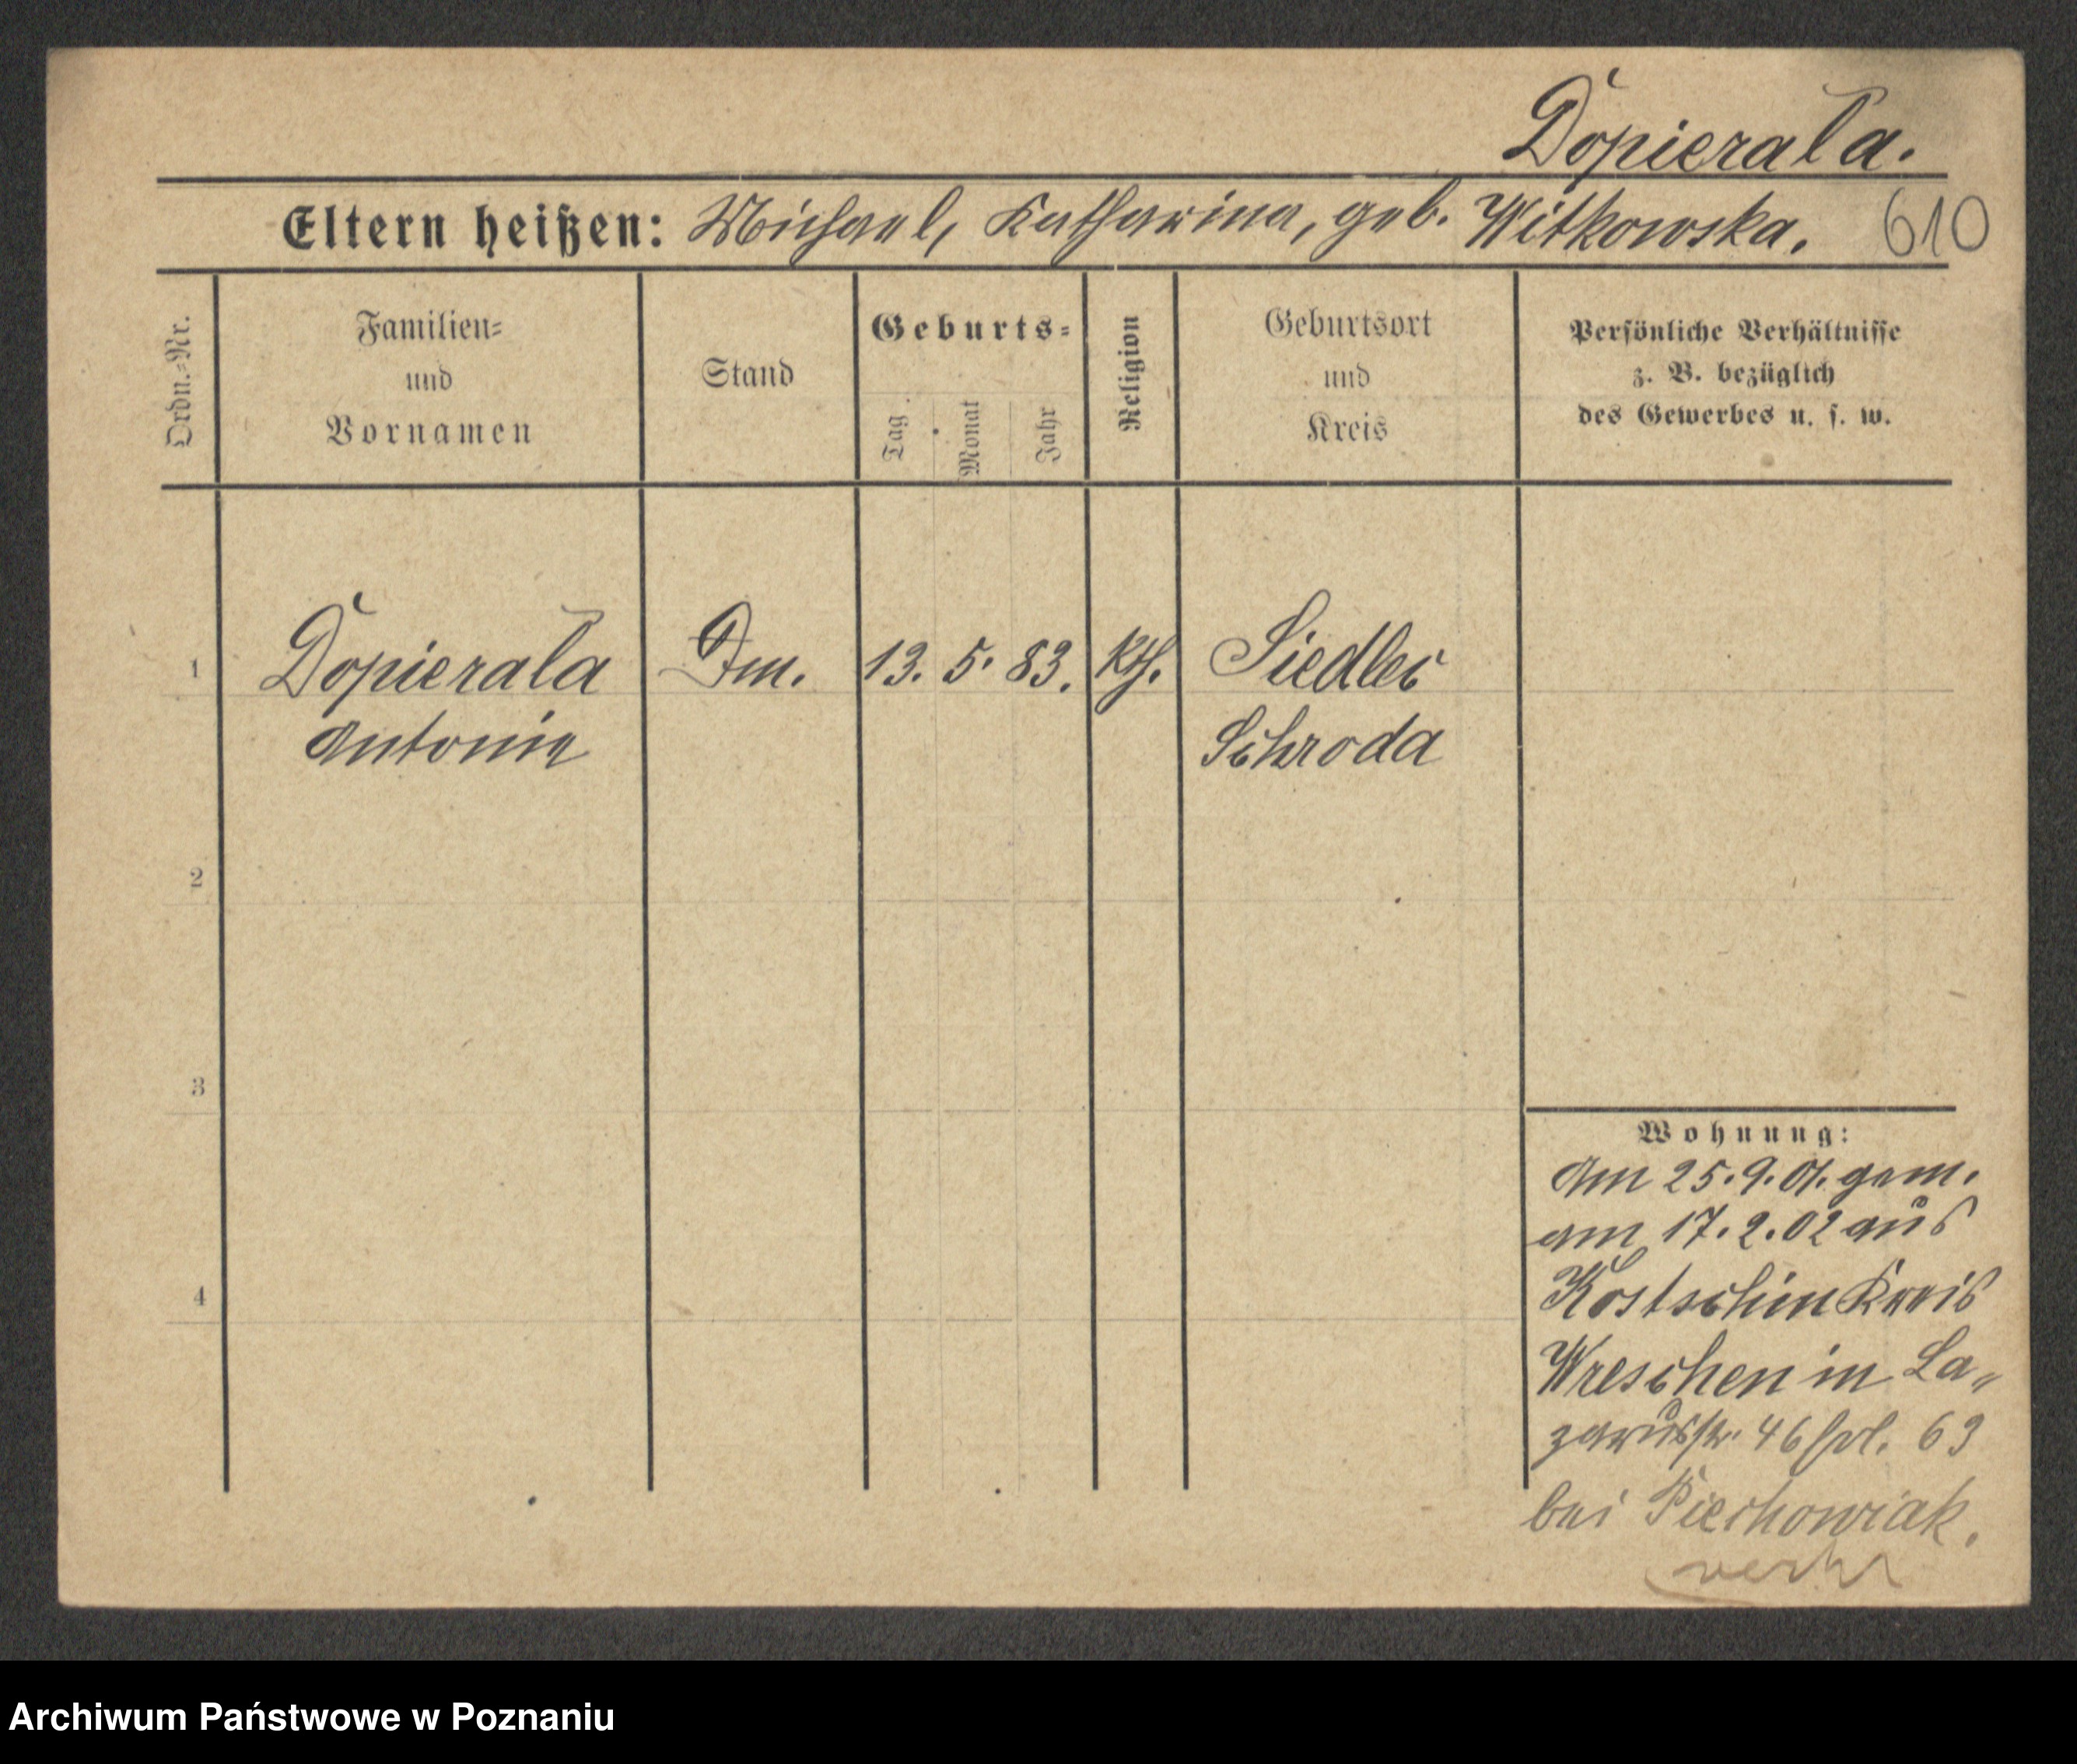 Dopierała.
Eltern heißen: Michael, Katharina, geb. Witkowska. 610
Ordn.=Nr.
Familien=
und
Vornamen
Stand
Geburts=
Tag
Monat
Jahr
Religion
Geburtsort
und
Kreis
Persönliche Verhältnisse
z. B. bezüglich
des Gewerbes u. s. w.
1 Dopierała Dm. 13. 5. 83. kth. Siedlec
Antonie Schroda
2
3
4
Wohnung:
Am 25.9.01. gem.
am 17.2.02 aus
Kostschin Kreis
Wreschen in La„
zarusstr. 46 69
bei Piechowiak.
Archiwum Państwowe w Poznaniu